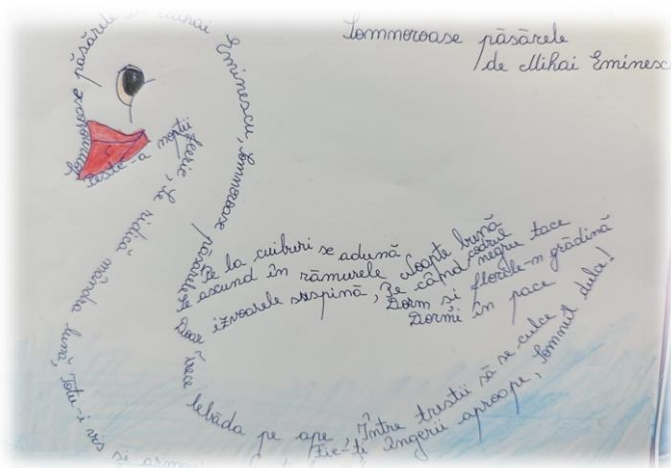 Somnoroase păsărele
de Mihai Eminesc
Somnoroase păsărele de Mihai Eminescu, Somnoroase păsărele
Pe la cuiburi se adună
Se ascund în rămurele Noapte bună
Doar izvoarele suspină, Pe când codrul negru tace
Dorm și florile-n grădină
Dormi în pace
Trece lebăda pe ape, Între trestii să se culce
Fie-ți îngerii aproape, Somnul dula!
Peste-a nopții feerie, Se ridică mândra lună, Totu-i vis și armoni